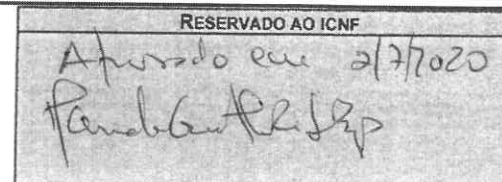 RESERVADO AO ICNF
Aprovado em 2/7/2020